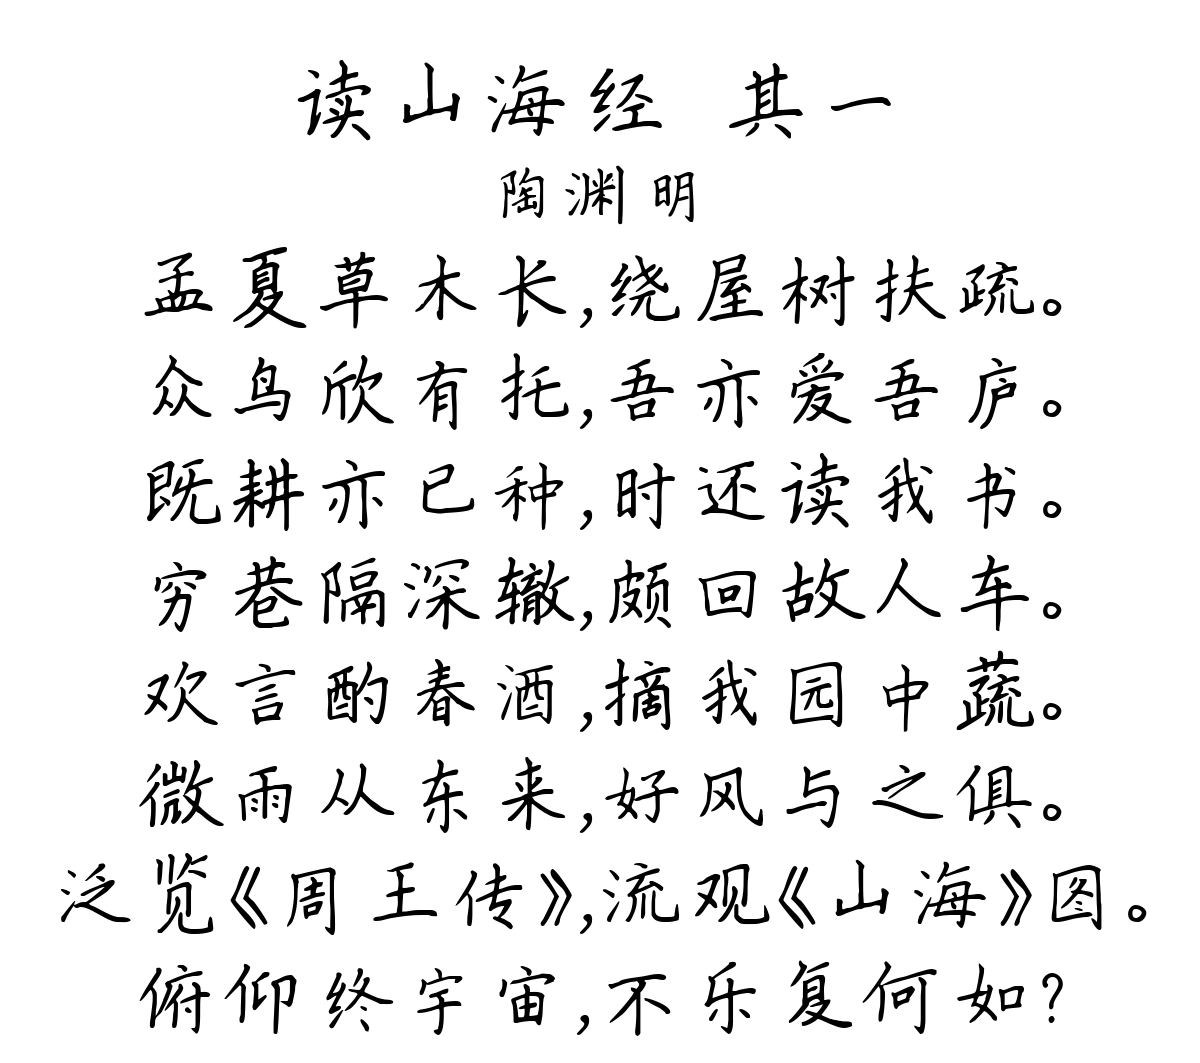 读山海经 其一
陶渊明
孟夏草木长,绕屋树扶疏。
众鸟欣有托,吾亦爱吾庐。
既耕亦已种,时还读我书。
穷巷隔深辙,颇回故人车。
欢言酌春酒,摘我园中蔬。
微雨从东来,好风与之俱。
泛览《周王传》,流观《山海》图。
俯仰终宇宙,不乐复何如?